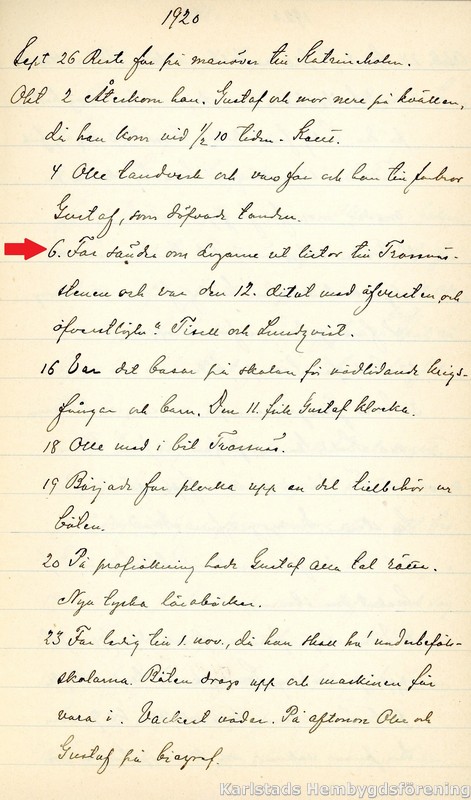 1920
Sept 26 Reste far på manöver till Katrineholm.
Okt 2 Återkom han. Gustaf och mor nere på kvällen,
då han kom vid 1/2 10 tiden.
4 Olle tandverk och vars far och han till farbror
Gustaf, som döfvade tanden.
6. Far sände om dagarne ut listor till Trossnäs-
stenen och var den 12. ditut med öfversten och
öfverstlöjtn:a Tisell och Lundqvist.
16 Var det basar på skolan för nödlidande krigs-
fångar och barn. Den 11. fick Gustaf klocka.
18 Olle med i bil Trossnäs.
19 Började far plocka upp en del tillbehör ur
båten.
20 På profräkning hade Gustaf alla tal rätt.
Nya tyska läroböcker.
23 Far ledig till 1. nov., då han skall ha' underbefäls-
skolorna. Båten drogs upp och maskinen får
vara i. Vackert väder. På aftonen Olle och
Gustaf på biograf.
Karlstads Hembygdsförening